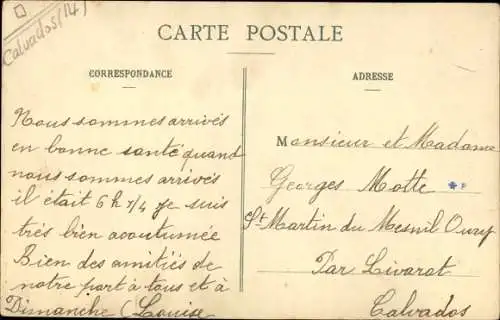 Calvados (14)
CARTE POSTALE
CORRESPONDANCE
Nous sommes arrivés
en bonne santé quand
nous sommes arrivés
il était 6 h 3/4 je suis
très bien acoutumée
Bien des amitiés de
notre part à tous et à
Dimanche (Louise
ADRESSE
Monsieur et Madame
Georges Motte
St Martin du Mesnil Oury
Par Livarot
Calvados